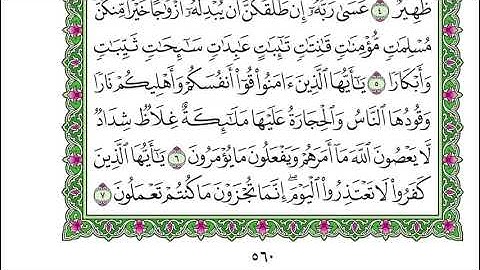 ظَهِيرٌ ٤ عَسَىٰ رَبُّهُۥٓ إِن طَلَّقَكُنَّ أَن يُبْدِلَهُۥٓ أَزْوَٰجًا خَيْرًا مِّنكُنَّ
مُسْلِمَٰتٍ مُّؤْمِنَٰتٍ قَٰنِتَٰتٍ تَٰٓئِبَٰتٍ عَٰبِدَٰتٍ سَٰٓئِحَٰتٍ ثَيِّبَٰتٍ
وَأَبْكَارًا ٥ يَٰٓأَيُّهَا ٱلَّذِينَ ءَامَنُوا۟ قُوٓا۟ أَنفُسَكُمْ وَأَهْلِيكُمْ نَارًا
وَقُودُهَا ٱلنَّاسُ وَٱلْحِجَارَةُ عَلَيْهَا مَلَٰٓئِكَةٌ غِلَاظٌ شِدَادٌ
لَّا يَعْصُونَ ٱللَّهَ مَآ أَمَرَهُمْ وَيَفْعَلُونَ مَا يُؤْمَرُونَ ٦ يَٰٓأَيُّهَا ٱلَّذِينَ
كَفَرُوا۟ لَا تَعْتَذِرُوا۟ ٱلْيَوْمَ ۖ إِنَّمَا تُجْزَوْنَ مَا كُنتُمْ تَعْمَلُونَ ٧
٥٦٠